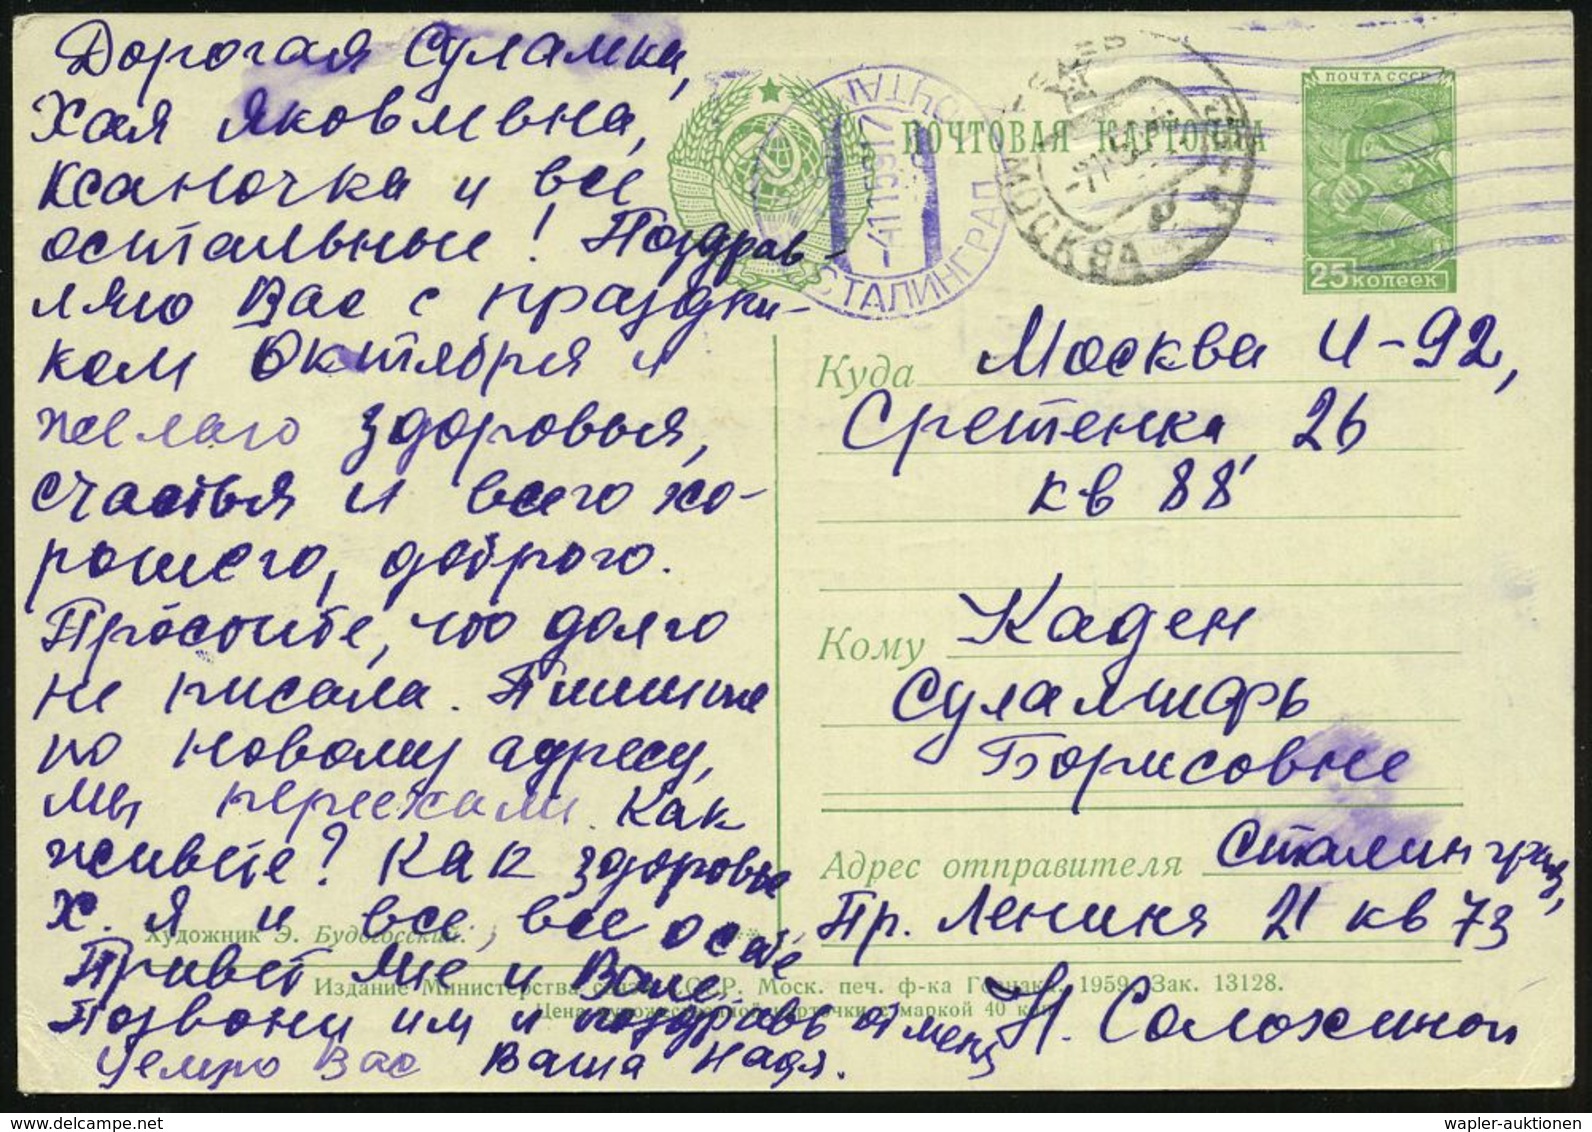 Дорогая Суламка,
Хая Яковлевна,
Ксаночка и все
остальные! Поздрав-
ляю Вас с праздни-
ком Октября и
желаю здоровья,
счастья и всего хо-
рошего, доброго.
Простите, что долго
не писала. Пишите
по новому адресу,
мы переехали. Как
живете? Как здоровье
Х. Я и все, все
Привет Мие и Вале.
Позвони им и поздравь от меня
Целую Вас Ваша Надя.
ПОЧТОВАЯ КАРТОЧКА
ПОЧТА СССР
25 копеек
СТАЛИНГРАД
ПОЧТА
-41159 17
МОСКВА
Куда Москва И-92,
Сретенка 26
кв 88
Кому Каден
Суламифь
Борисовне
Адрес отправителя Сталинград,
Пр. Ленина 21 кв 73
Н. Солохиной
Художник Э. Будогосский.
Издание Министерства связи СССР. Моск. печ. ф-ка Гознака. 1959. Зак. 13128.
Цена художественной карточки с маркой 40 коп.
wapler-auktionen